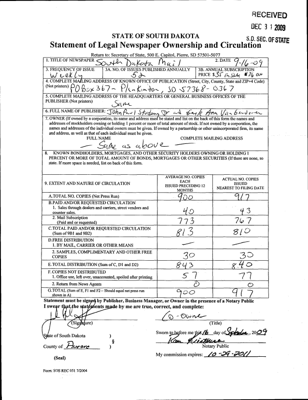 RECEIVED
DEC 31 2009
S.D. SEC. OF STATE
STATE OF SOUTH DAKOTA
Statement of Legal Newspaper Ownership and Circulation
Return to: Secretary of State, 500 E. Capitol, Pierre, SD 57501-5077
1. TITLE OF NEWSPAPER South Dakota Mail
2. DATE 9/16-09
3. FREQUENCY OF ISSUE Weekly
3A. NO. OF ISSUES PUBLISHED ANNUALLY 52
3B. ANNUAL SUBSCRIPTION PRICE
4. COMPLETE MAILING ADDRESS OF KNOWN OFFICE OF PUBLICATION (Street, City, County, State and ZIP+4 Code)
(Not printers) PO Box 367 - Plankinton, SD 57368-0367
5. COMPLETE MAILING ADDRESS OF THE HEADQUARTERS OR GENERAL BUSINESS OFFICES OF THE
PUBLISHER (Not printers)
Same
6. FULL NAME OF PUBLISHER:
7. OWNER (If owned by a corporation, its name and address must be stated and list on the back of this form the names and
addresses of stockholders owning or holding 1 percent or more of total amount of stock. If not owned by a corporation, the
names and addresses of the individual owners must be given. If owned by a partnership or other unincorporated firm, its name
and address, as well as that of each individual must be given.
FULL NAME COMPLETE MAILING ADDRESS
Same as above
8. KNOWN BONDHOLDERS, MORTGAGES, AND OTHER SECURITY HOLDERS OWNING OR HOLDING 1
PERCENT OR MORE OF TOTAL AMOUNT OF BONDS, MORTGAGES OR OTHER SECURITIES (If there are none, so
state. If more space is needed, list on back of this form.
9. EXTENT AND NATURE OF CIRCULATION
AVERAGE NO. COPIES EACH ISSUED PRECEDING 12 MONTHS
ACTUAL NO. COPIES ISSUED NEAREST TO FILING DATE
A. TOTAL NO. COPIES (Net Press Run) 900 917
B. PAID AND/OR REQUESTED CIRCULATION
1. Sales through dealers and carriers, street vendors and
counter sales. 40 43
2. Mail Subscription
(Paid and or requested) 773 767
C. TOTAL PAID AND/OR REQUESTED CIRCULATION
(Sum of 9B1 and 9B2) 813 810
D. FREE DISTRIBUTION
1. BY MAIL, CARRIER OR OTHER MEANS
2. SAMPLES, COMPLIMENTARY AND OTHER FREE
COPIES 30 30
E. TOTAL DISTRIBUTION (Sum of C, D1 and D2) 843 840
F. COPIES NOT DISTRIBUTED
1. Office use, left over, unaccounted, spoiled after printing 57 77
2. Return from News Agents 0 0
G. TOTAL (Sum of E, F1 and F2 - Should equal net press run
shown in A) 900 917
Statement must be signed by Publisher, Business Manager, or Owner in the presence of a Notary Public
I swear that the statements made by me are true, correct, and complete:
Co-Owner
(Signature) (Title)
State of South Dakota
Sworn to before me 16 day of September 2009
County of Aurora
Notary Public
(Seal)
My commission expires: 10-29-2011